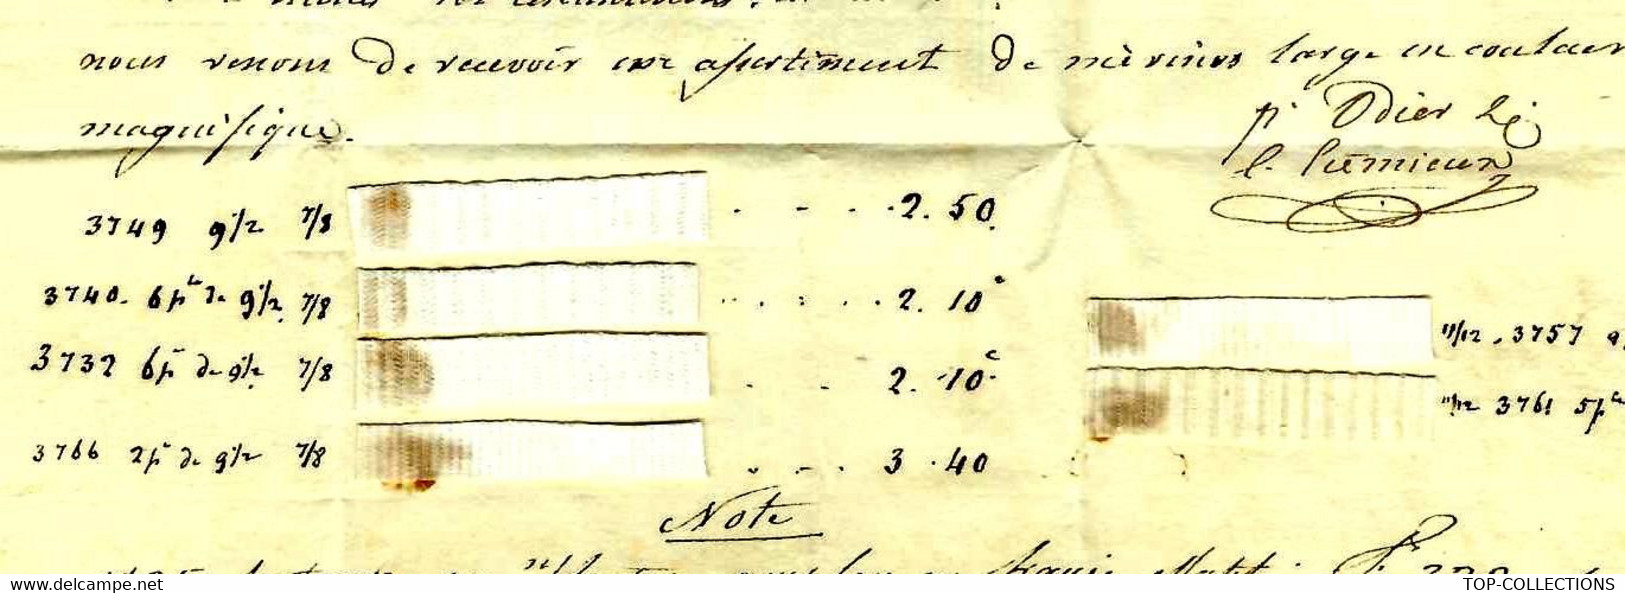 nous venons de recevoir un assortiment de mérinos large en couleur
magnifique.
pr Odier &
L. Lumieux
3749 9 1/2 7/8 2.50.
3740. 6 ps de 9 1/2 7/8 2.10c
3732 6 ps de 9 1/2 7/8 2.10c
3766 2 ps de 9 1/2 7/8 3.40
11/12. 3757
11/12 3761 5 ps
Note
www.delcampe.net
TOP-COLLECTIONS